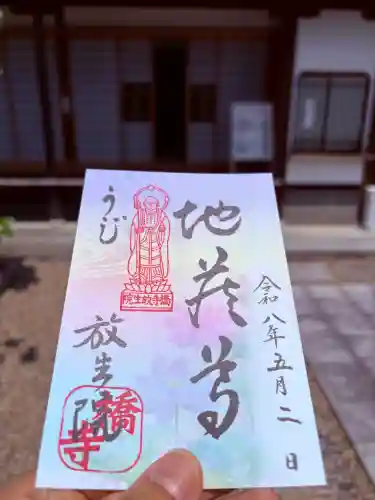 令和八年五月二日
地蔵尊
橋寺放生院
うじ
放生院
橋寺